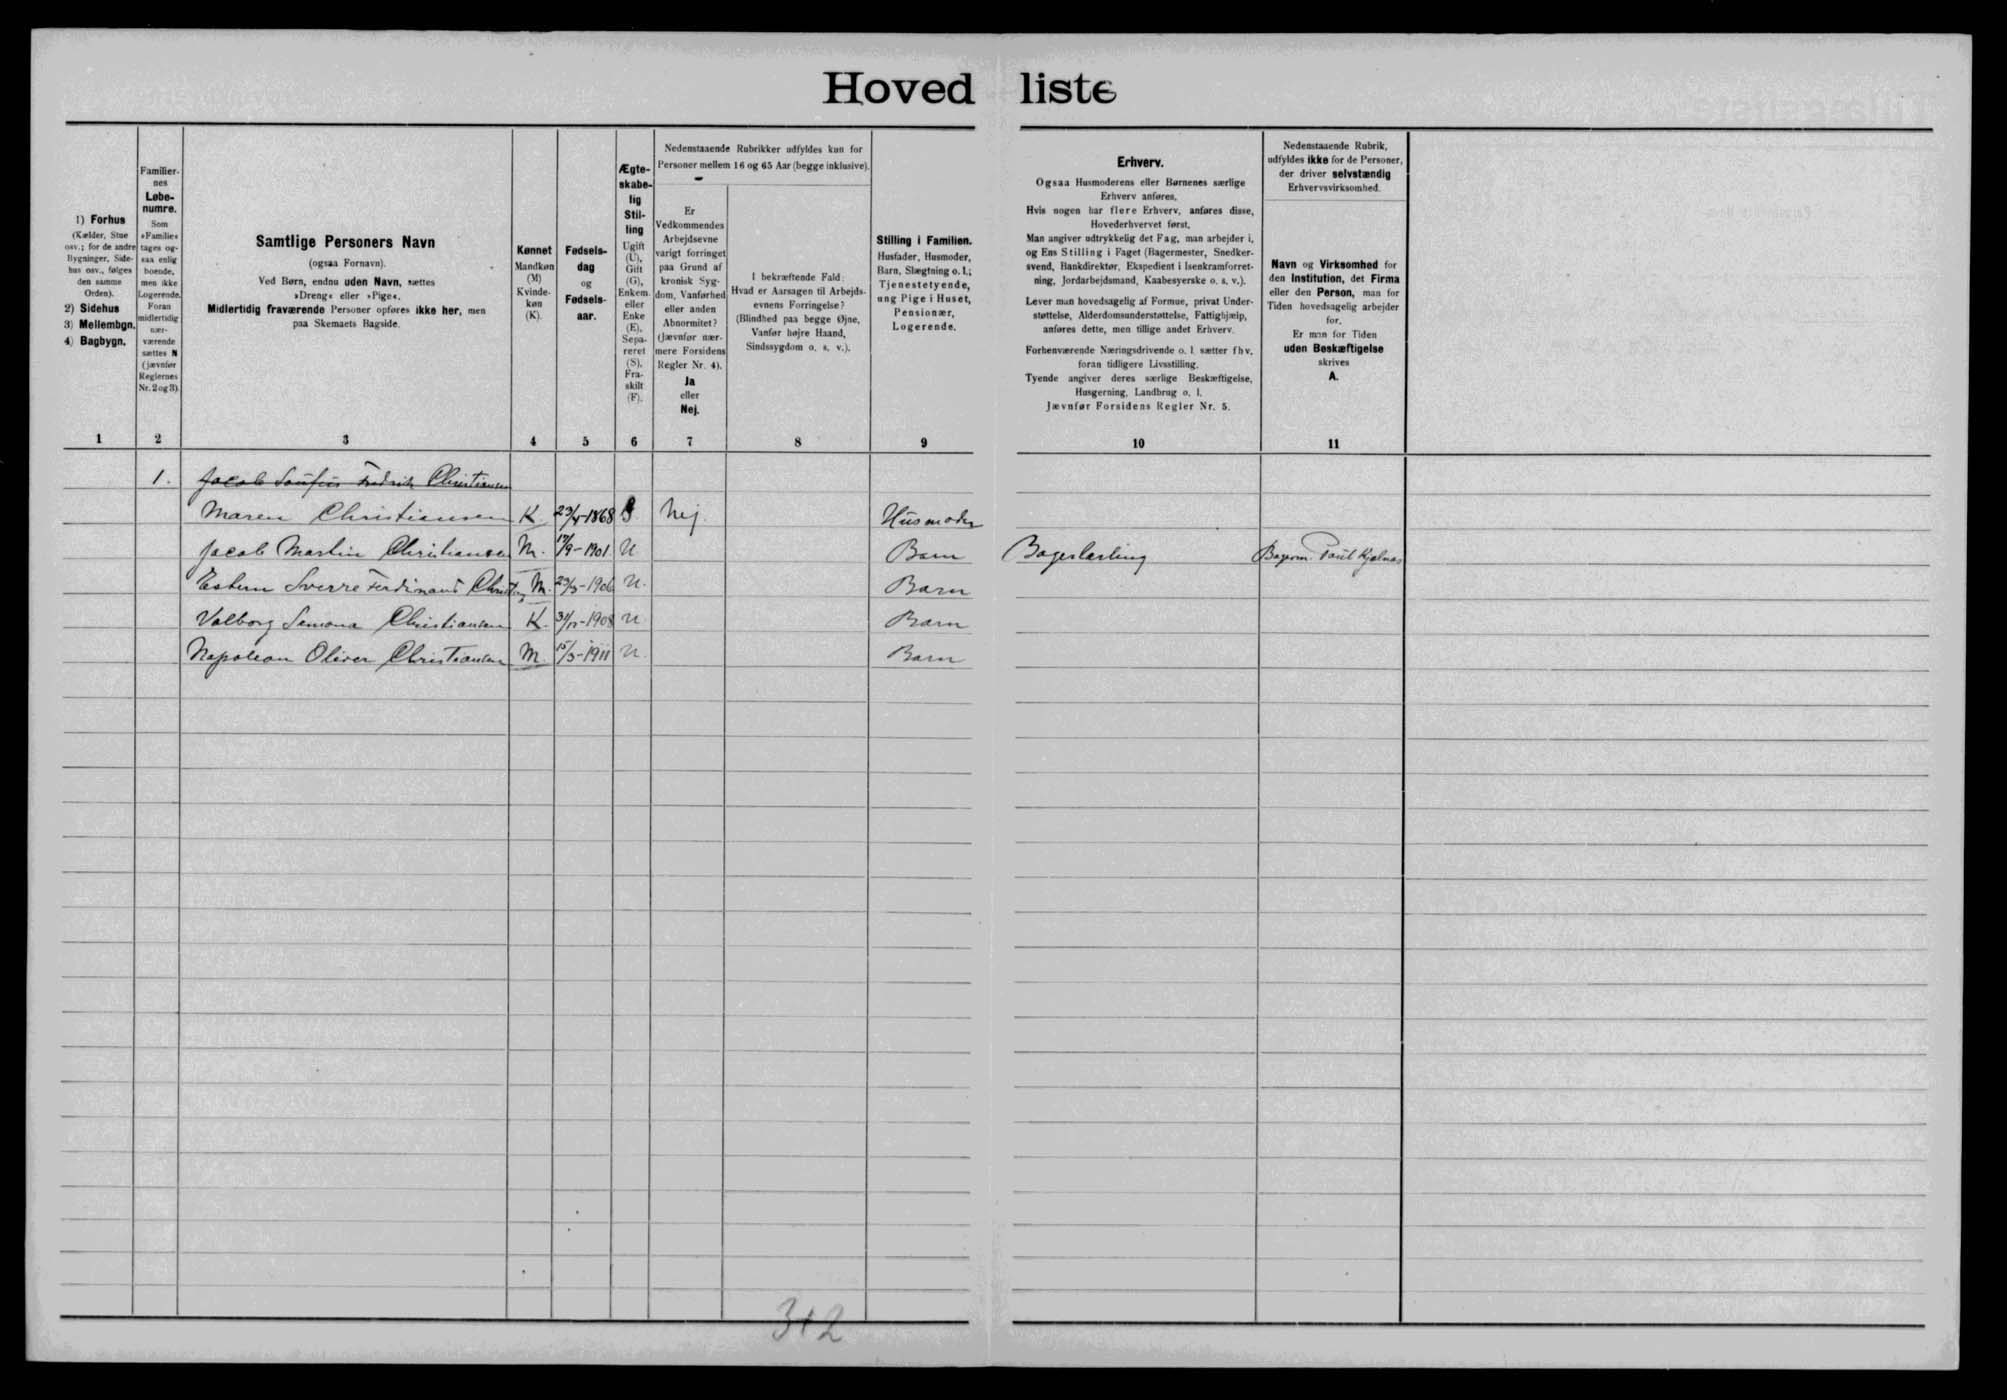 Hovedliste
1) Forhus
(Kælder, Stue
osv.; for de andre
Bygninger, Side-
hus osv., følges
den samme
Orden).
2) Sidehus
3) Mellembgn.
4) Bagbygn.
Familier-
nes
Løbe-
numre.
Som
»Familie«
tages og-
saa enlig
boende,
men ikke
Logerende.
Foran
midlertidig
nær-
værende
sættes N
(jævnfør
Reglernes
Nr. 2 og 3).
Samtlige Personers Navn
(ogsaa Fornavn).
Ved Børn, endnu uden Navn, sættes
»Dreng« eller »Pige«.
Midlertidig fraværende Personer opføres ikke her, men
paa Skemaets Bagside.
Kønnet
Mandkøn
(M)
Kvinde-
køn
(K).
Fødsels-
dag
og
Fødsels-
aar.
Ægte-
skabe-
lig
Stil-
ling
Ugift
(U),
Gift
(G),
Enkem.
eller
Enke
(E),
Sepa-
reret
(S),
Fra-
skilt
(F).
Nedenstaaende Rubrikker udfyldes kun for
Personer mellem 16 og 65 Aar (begge inklusive).
Er
Vedkommendes
Arbejdsevne
varigt forringet
paa Grund af
kronisk Syg-
dom, Vanførhed
eller anden
Abnormitet?
(Jævnfør nær-
mere Forsidens
Regler Nr. 4).
Ja
eller
Nej.
I bekræftende Fald:
Hvad er Aarsagen til Arbejds-
evnens Forringelse?
(Blindhed paa begge Øjne,
Vanfør højre Haand,
Sindssygdom o. s. v.).
Stilling i Familien.
Husfader, Husmoder,
Barn, Slægtning o. l.;
Tjenestetyende,
ung Pige i Huset,
Pensionær,
Logerende.
Erhverv.
Ogsaa Husmoderens eller Børnenes særlige
Erhverv anføres.
Hvis nogen har flere Erhverv, anføres disse,
Hovederhvervet først.
Man angiver udtrykkelig det Fag, man arbejder i,
og Ens Stilling i Faget (Bagermester, Snedker-
svend, Bankdirektør, Ekspedient i Isenkramforret-
ning, Jordarbejdsmand, Kaabesyerske o. s. v.).
Lever man hovedsagelig af Formue, privat Under-
støttelse, Alderdomsunderstøttelse, Fattighjælp,
anføres dette, men tillige andet Erhverv.
Forhenværende Næringsdrivende o. l. sætter fhv.
foran tidligere Livsstilling.
Tyende angiver deres særlige Beskæftigelse,
Husgerning, Landbrug o. l.
Jævnfør Forsidens Regler Nr. 5.
Nedenstaaende Rubrik,
udfyldes ikke for de Personer,
der driver selvstændig
Erhvervsvirksomhed.
Navn og Virksomhed for
den Institution, det Firma
eller den Person, man for
Tiden hovedsagelig arbejder
for.
Er man for Tiden
uden Beskæftigelse
skrives
A.
1 2 3 4 5 6 7 8 9 10 11
1. Jacob Fredrik Christiansen
Maren Christiansen K 23/4-1868 G Nej. Husmoder
Jacob Martin Christiansen M. /9-1901 U Barn Bagerlærling Bagerm. Poul
Sverre Ferdinand M. 23/3-1906 U. Barn
Valborg Semona Christiansen K. 1908 U Barn
Napoleon Oliver Christiansen M. 15/3-1911 U. Barn
3+2